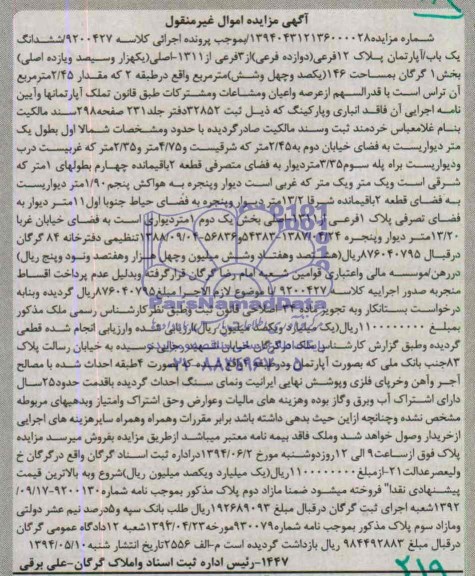 آگهی مزایده اموال غیرمنقول
شماره مزایده۱۳۹۴۰۴۳۱۲۱۳۶۰۰۰۰۲۸/بموجب پرونده اجرائی کلاسه ۹۲۰۰۴۲۷/ششدانگ
یک باب/آپارتمان پلاک ۱۲فرعی(دوازده فرعی)از۳فرعی از۱۳۱۱-اصلی(یکهزار وسیصد ویازده اصلی)
بخش۱ گرگان بمساحت ۱۴۶(یکصد وچهل وشش)مترمربع واقع درطبقه ۲ که مقدار ۲/۴۵مترمربع
آن تراس است با قدرالسهم ازعرصه واعیان ومشاعات ومشترکات طبق قانون تملک آپارتمانها وآیین
نامه اجرایی آن فاقد انباری وپارکینگ که ذیل ثبت ۳۲۸۵۲دفتر جلد۲۳۱ صفحه۲۹۸سند مالکیت
بنام غلامعباس خردمند ثبت وسند مالکیت صادرگردیده با حدود ومشخصات شمالا اول بطول یک
متر دیواریست به فضای خیابان دوم به۲/۴۵متر که شرقیست و۴/۷۵متر و۲/۳۵متر که غربیست درب
ودیواریست براه پله سوم۳/۳۵متردیوار به فضای متصرفی قطعه ۲باقیمانده چهارم بطولهای ۱متر که
شرقی است ویک متر ویک متر که غربی است دیوار وپنجره به هواکش پنجم۱/۹۰متر دیواریست
به فضای قطعه ۲باقیمانده شرقا ۱۳/۲۰متر دیوار وپنجره به فضای حیاط جنوبا اول۱۱متر دیوار به
فضای تصرفی پلاک ۱فرعی از۱۳۱۱-اصلی بخش یک دوم ۱متردیواری است به فضای خیابان غربا
۱۳/۲۰متر دیوار وپنجره
تنظیمی دفترخانه ۸۴ گرگان
درقبال ۸۷۶۰۴۰۷۹۵ریال(هشتصد وهفتاد وشش میلیون وچهل هزار وهفتصد ونود وپنج ریال)
دررهن/موسسه مالی واعتباری قوامین شعبه امام رضا گرگان قرارگرفته وبدلیل عدم پرداخت اقساط
منجربه صدور اجراییه کلاسه ۹۲۰۰۴۲۷ با موضوع لازم الاجرا مبلغ۸۷۶۰۴۰۷۹۵ریال گردیده وبنابه
درخواست بستانکار وبه تجویز ماده ۳۴ اصلاحی قانون ثبت وطبق نظرکارشناس رسمی ملک مذکور
بمبلغ ۱۱۰۰۰۰۰۰۰۰ریال(یک میلیارد ویکصد میلیون ریال)ارزیابی شده وارزیابی انجام شده قطعی
گردیده وطبق گزارش کارشناس ملک درگرگان خیابان شهدا نرسیده به خیابان رسالت پلاک
۸۳جنب بانک ملی که بصورت آپارتمان ودوطبقه واقع شده که بصورت ۴طبقه احداث شده با مصالح
آجر وآهن وخرپای فلزی وپوشش نهایی ایرانیت ونمای سنگ احداث گردیده باقدمت حدود۲۵سال
دارای اشتراک آب وبرق وگاز بوده وهزینه های مالیات وعوارض وحق اشتراک وامتیاز وبدهیهای مربوطه
مشخص نشده وچنانچه ازاین حیث بدهی داشته باشد برابر مقررات وهمراه وهمراه سایرهزینه های اجرایی
ازخریدار وصول خواهد شد وملک فاقد بیمه نامه معتبر میباشد ازطریق مزایده بفروش میرسد مزایده
پلاک فوق ازساعت۹ الی ۱۲روزدوشنبه مورخ ۱۳۹۴/۰۶/۲دراداره ثبت اسناد گرگان واقع درگرگان خ
ولیعصرعدالت۲۱-ازمبلغ۱۱۰۰۰۰۰۰۰۰ریال(یک میلیارد ویکصد میلیون ریال)شروع وبه بالاترین قیمت
پیشنهادی نقدا" فروخته میشود ضمنا مازاد دوم پلاک مذکور بموجب نامه شماره۹۲۰۰۱۳۰-۰۹/۱۷/
۱۳۹۲شعبه اجرای ثبت گرگان درقبال مبلغ ۱۹۲۶۸۹۰۹۳ریال طلب بانک سپه و۵درصد نیم عشر دولتی
ومازاد سوم پلاک مذکور بموجب نامه شماره۹۳۰۰۷۹مورخه۱۳۹۳/۰۴/۲۳شعبه ۱۲دادگاه عمومی گرگان
درقبال مبلغ ۹۸۴۴۹۲۸۸۳ ریال بازداشت گردیده است م-الف ۲۵۵۶تاریخ انتشار شنبه۱۳۹۴/۰۵/۱۰
۱۴۴۷-رئیس اداره ثبت اسناد واملاک گرگان-علی برقی
ParsNamadData
۰۲۱-۸۸۳۴۹۶۷۰
۲۱۹